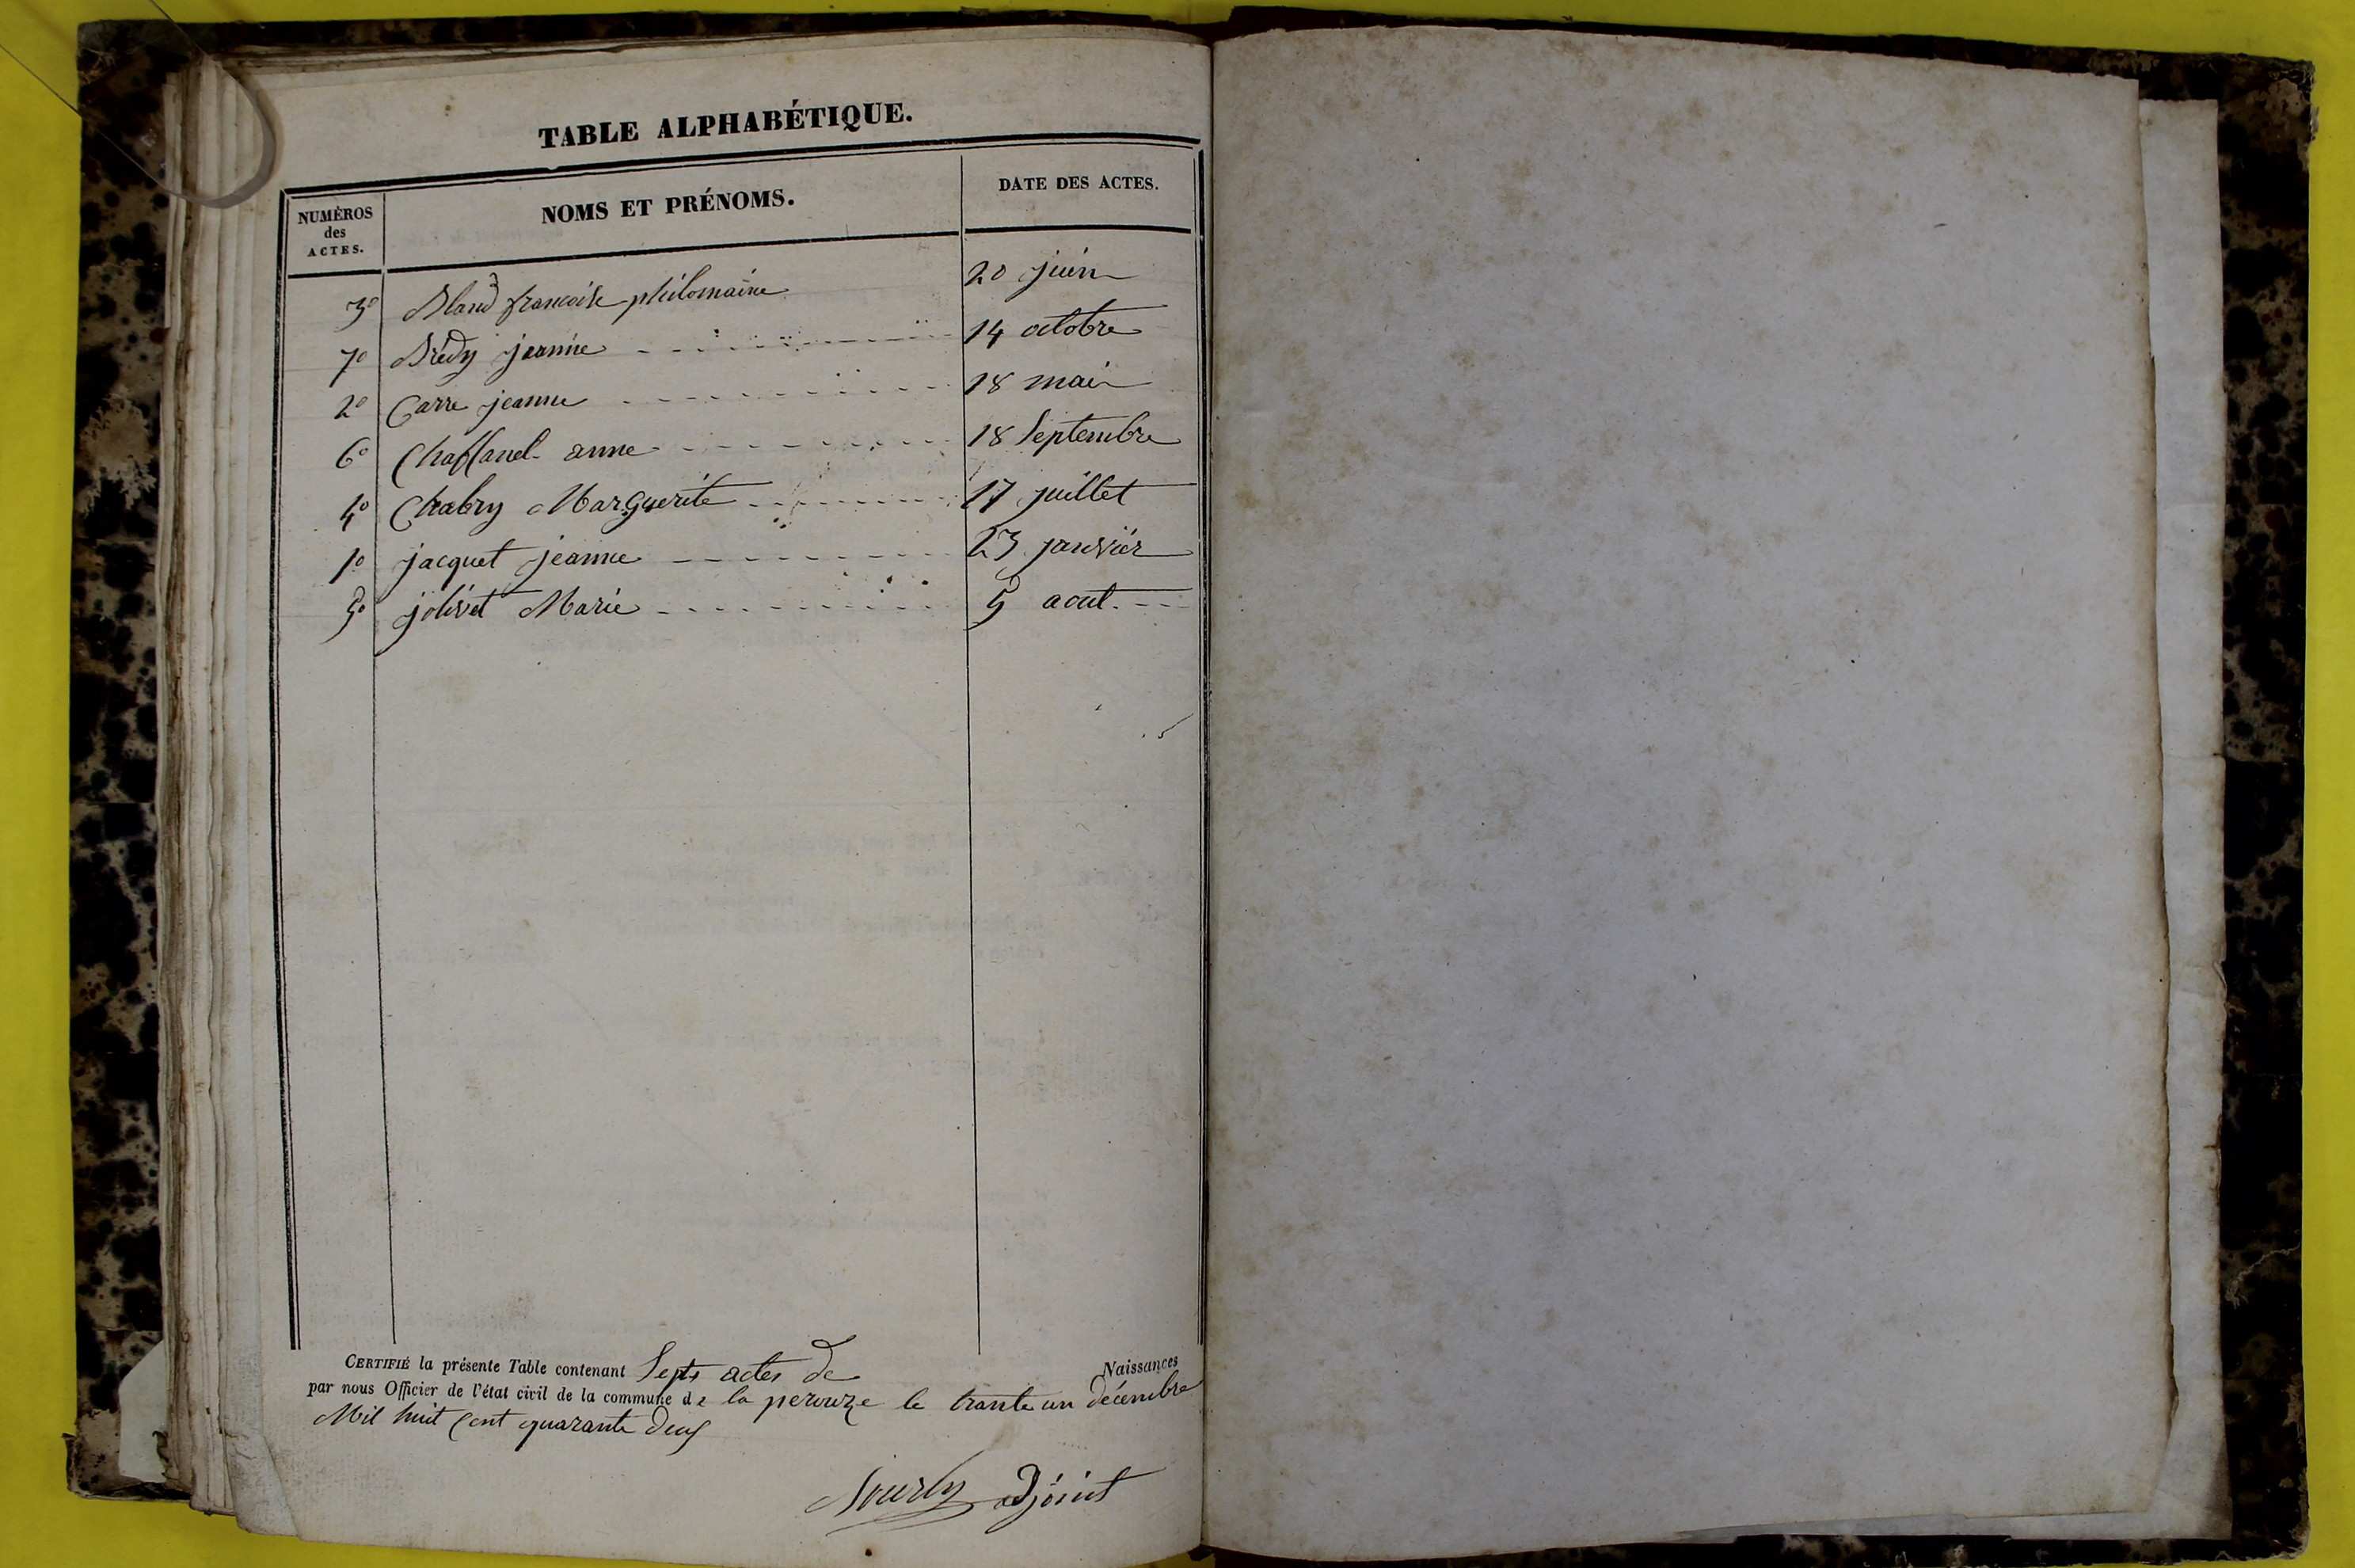 TABLE ALPHABÉTIQUE.
NUMÉROS
des
ACTES.
NOMS ET PRÉNOMS.
DATE DES ACTES.
3º Bland francoise philomaine 20 juin
7º Brédy jeanne 14 octobre
2º Carre jeanne 18 mai
6º Chassanel anne 18 Septembre
4º Chabry Marguerite 17 juillet
1º jacquet jeanne 23 janvier
5º jolivet Marie 5 aout
CERTIFIÉ la présente Table contenant Septs actes de Naissances
par nous Officier de l'état civil de la commune de la perouze le trante un décembre
Mil huit Cent quarante deux
adjoint